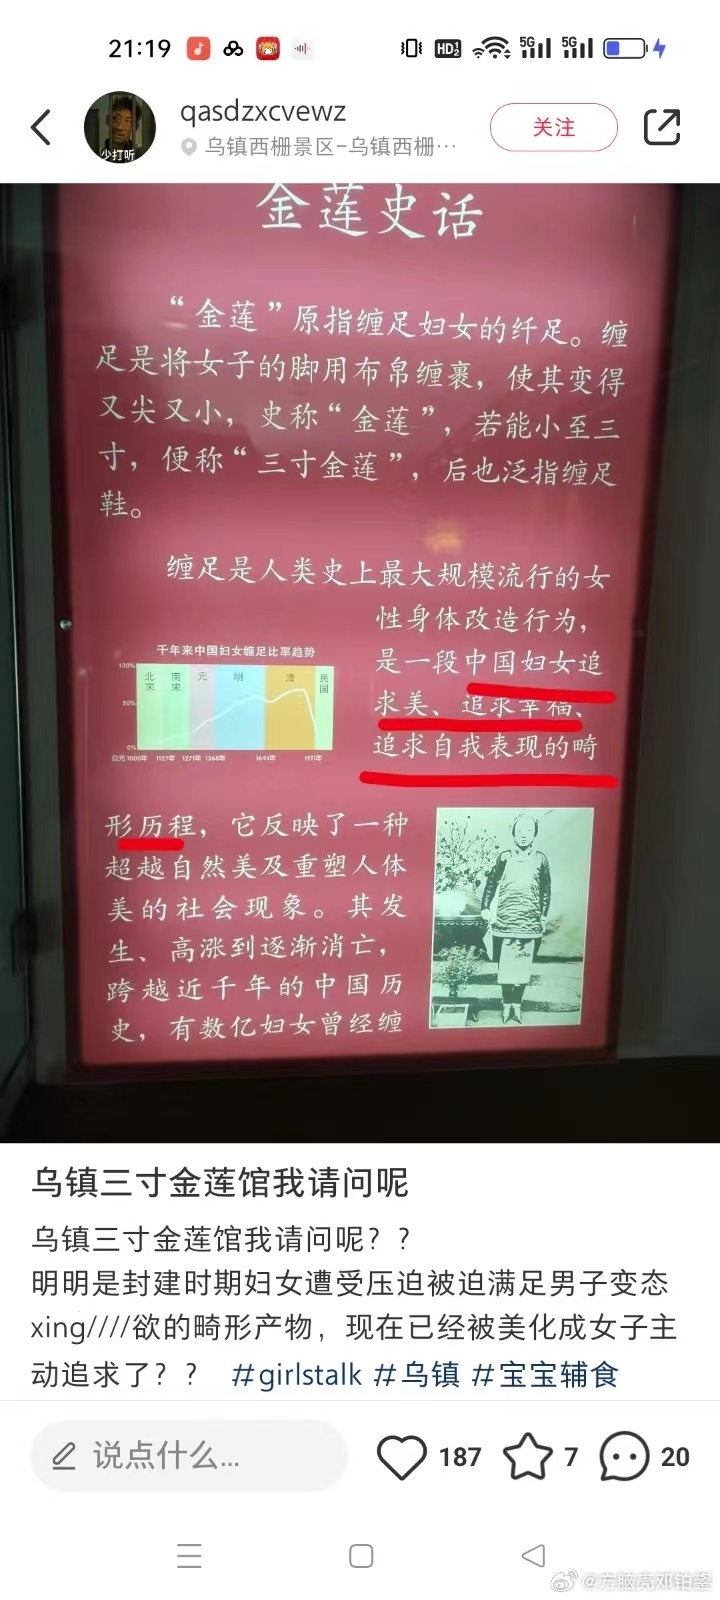 21:19
HD
5G
5G
qasdzxcvewz
关注
少打听
乌镇西栅景区-乌镇西栅…
金莲史话
“金莲”原指缠足妇女的纤足。缠
足是将女子的脚用布帛缠裹，使其变得
又尖又小，史称“金莲”，若能小至三
寸，便称“三寸金莲”，后也泛指缠足
鞋。
缠足是人类史上最大规模流行的女
性身体改造行为，
是一段中国妇女追
求美、追求幸福、
追求自我表现的畸
千年来中国妇女缠足比率趋势
100%
50%
0%
北宋
南宋
元
明
清
民国
公元1000年 1127年 1271年 1368年 1644年 1911年
形历程，它反映了一种
超越自然美及重塑人体
美的社会现象。其发
生、高涨到逐渐消亡，
跨越近千年的中国历
史，有数亿妇女曾经缠
乌镇三寸金莲馆我请问呢
乌镇三寸金莲馆我请问呢？？
明明是封建时期妇女遭受压迫被迫满足男子变态
xing////欲的畸形产物，现在已经被美化成女子主
动追求了？？ #girlstalk #乌镇 #宝宝辅食
说点什么...
187
7
20